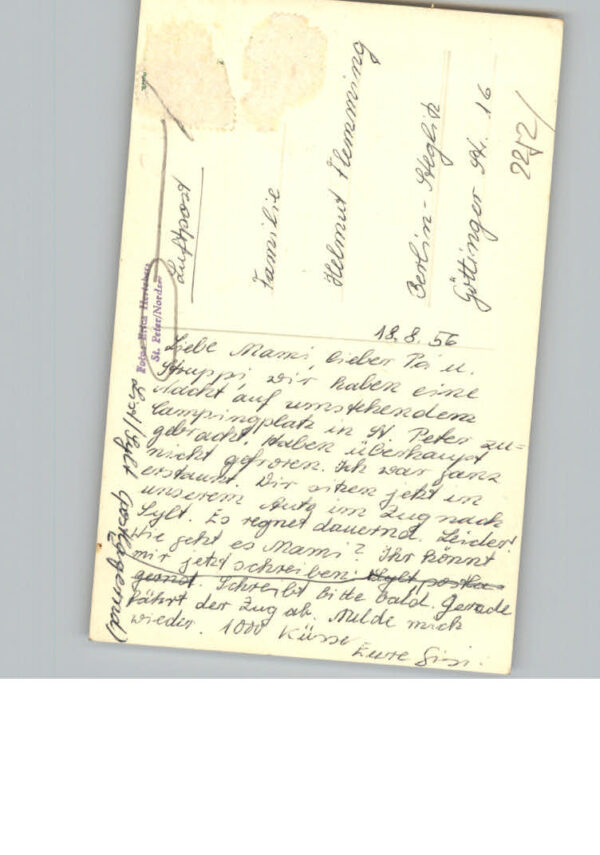 Luftpost
Familie
Helmut Flemming
Berlin-Steglitz
Göttinger Str. 16
22J2/
Fotos Erich Hertzberg
St. Peter/Nordsee
18.8.56
Liebe Mami, lieber Pa u.
Struppi, wir haben eine
Nacht auf umstehendem
Campingplatz in St. Peter zu-
gebracht. Haben überhaupt
nicht gefroren. Ich war ganz
erstaunt. Wir sitzen jetzt in
unserem Auto im Zug nach
Sylt. Es regnet dauernd. Leider!
Wie geht es Mami? Ihr könnt
mir jetzt schreiben: Sylt, postla-
gernd. Schreibt bitte bald. Gerade
fährt der Zug ab. Melde mich
wieder. 1000 Küsse
Eure Gisi.
List/Sylt (postlagernd)